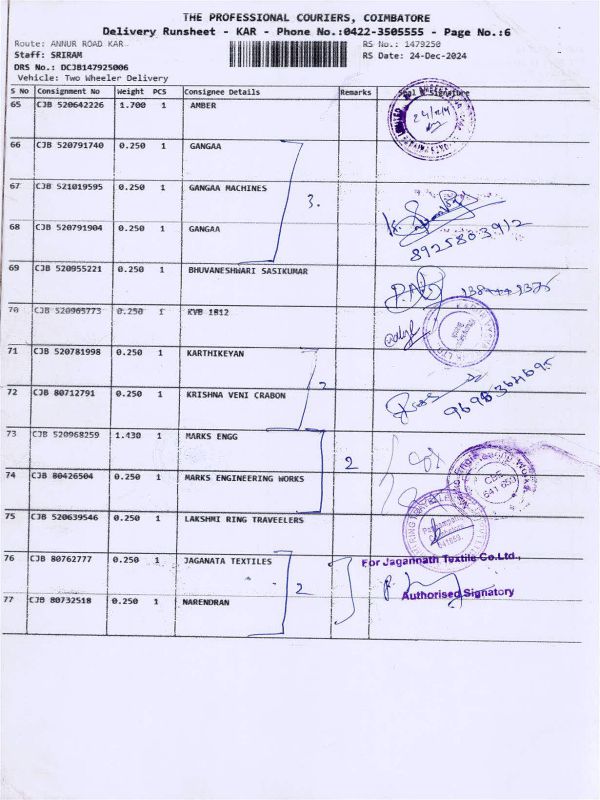 THE PROFESSIONAL COURIERS, COIMBATORE
Delivery Runsheet - KAR - Phone No.:0422-3505555 - Page No.:6
Route: ANNUR ROAD KAR
RS No.: 1479250
Staff: SRIRAM
RS Date: 24-Dec-2024
DRS No.: DCJB147925006
Vehicle: Two Wheeler Delivery
S No Consignment No Weight PCS Consignee Details Remarks
65 CJB 520642226 1.700 1 AMBER
66 CJB 520791740 0.250 1 GANGAA
67 CJB 521019595 0.250 1 GANGAA MACHINES
3.
68 CJB 520791904 0.250 1 GANGAA
8925803912
69 CJB 520955221 0.250 1 BHUVANESHWARI SASIKUMAR
70 CJB 520965773 0.250 1 KVB 1812
71 CJB 520781998 0.250 1 KARTHIKEYAN
2
72 CJB 80712791 0.250 1 KRISHNA VENI CRABON
73 CJB 520968259 1.430 1 MARKS ENGG
2
74 CJB 80426504 0.250 1 MARKS ENGINEERING WORKS
75 CJB 520639546 0.250 1 LAKSHMI RING TRAVEELERS
76 CJB 80762777 0.250 1 JAGANATA TEXTILES
For Jagannath Textile Co.Ltd.,
2
Authorised Signatory
77 CJB 80732518 0.250 1 NARENDRAN